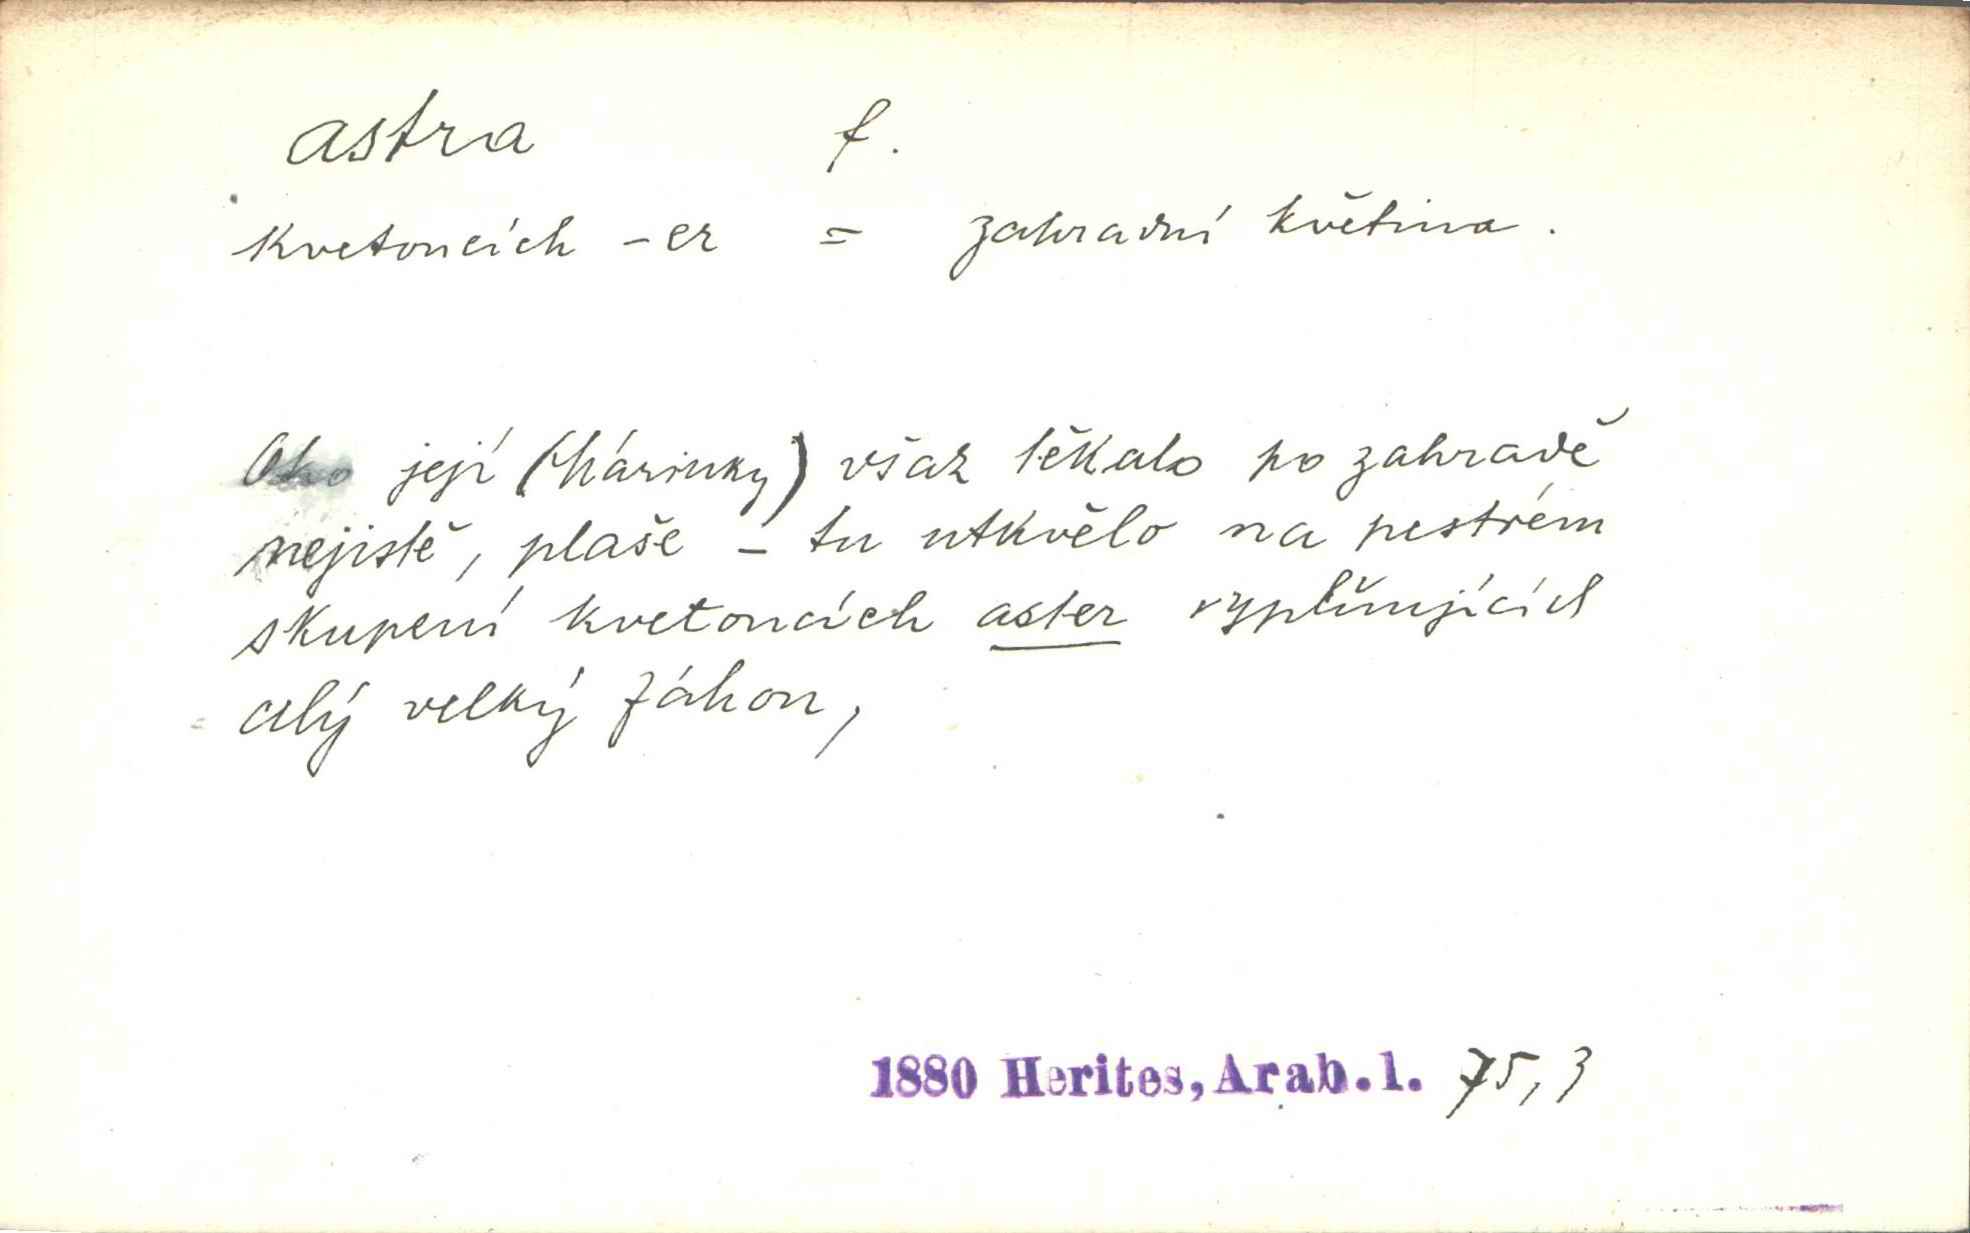 astra f.
kvetoucích -er = zahradní květina.
Oko její (Márinky) však těkalo po zahradě
nejistě, plaše – tu utkvělo na pestrém
skupení kvetoucích aster vyplňujících
celý velký záhon,
1880 Herites, Arab. 1. 75,3